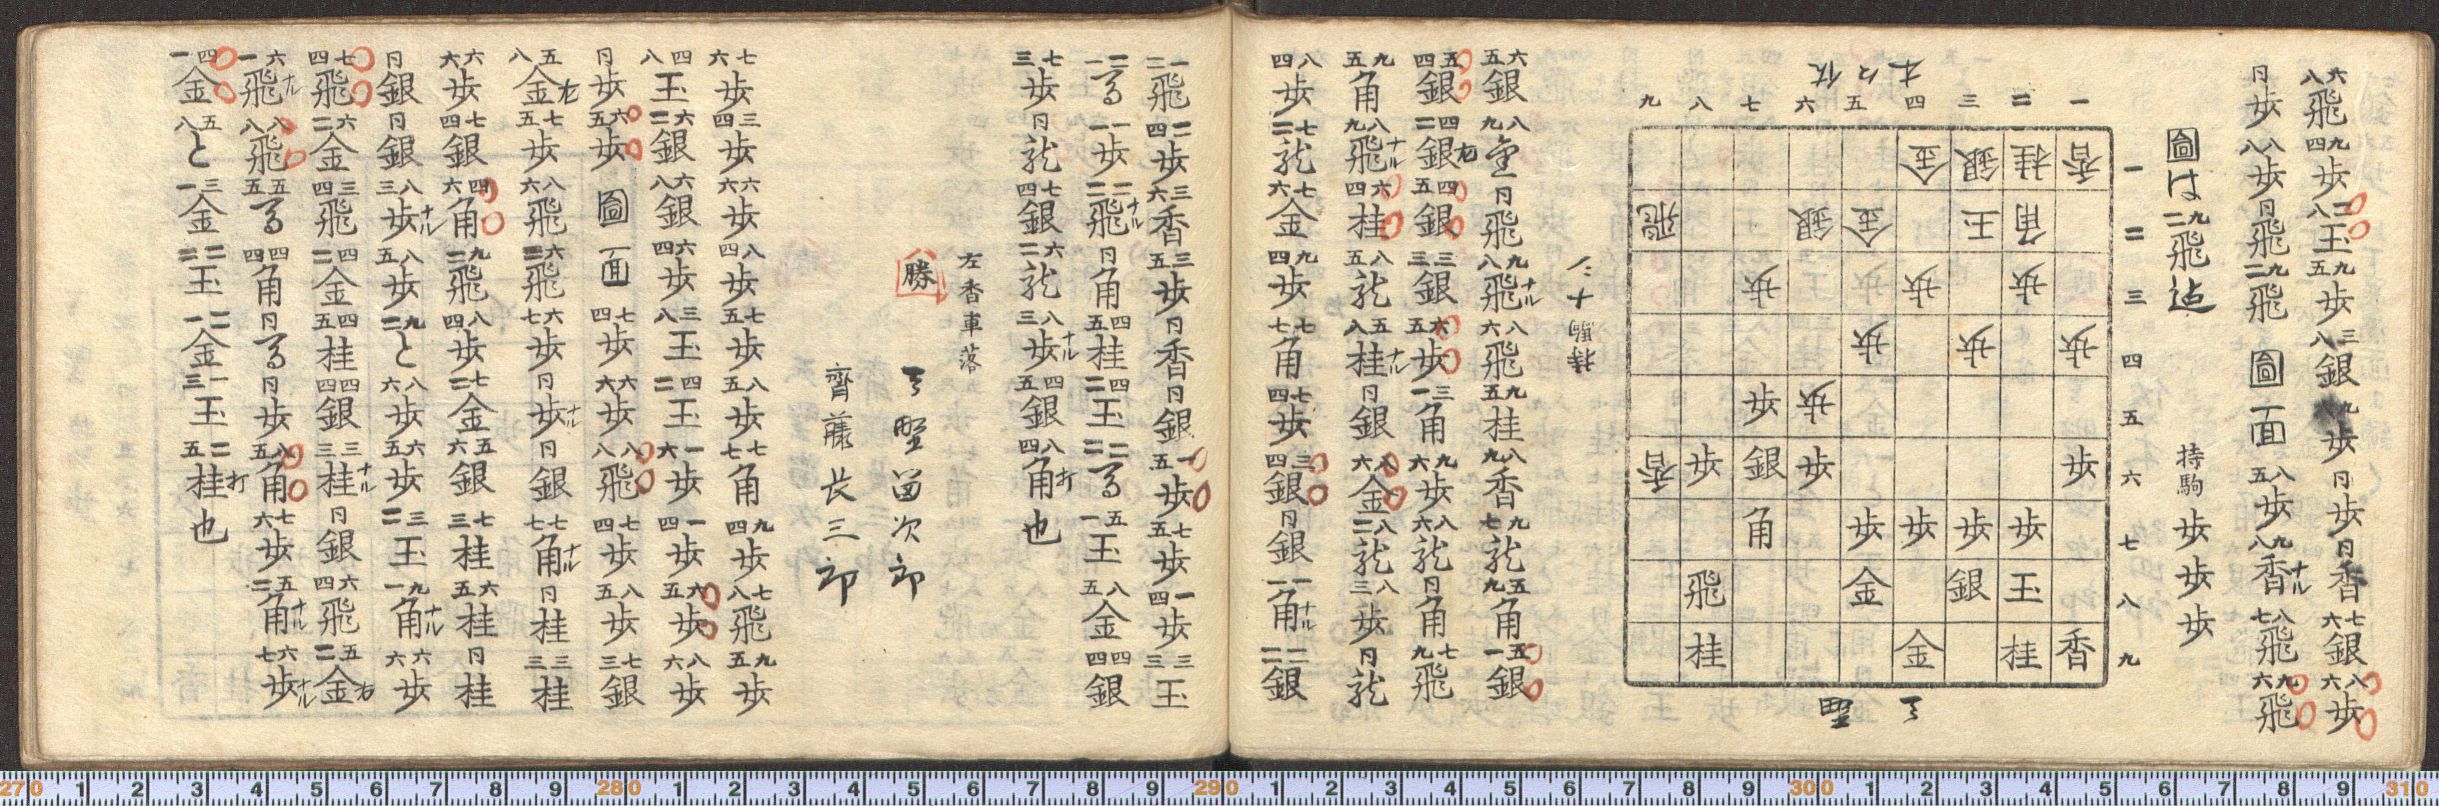 六八飛九四歩二八玉九五歩三八銀歩同歩同香七六銀八六歩
同歩八八歩同飛九二飛圖面八五歩九八香ナル八七飛九六飛
圖は九二飛迠
持駒歩歩歩
九八七六五四三二一
金銀桂香 一
飛銀金玉角 二
歩歩歩歩 三
歩歩歩 四
歩歩 五
香歩銀歩歩 六
角歩歩歩歩 七
飛金銀玉 八
桂金桂香 九
天野
持駒
六五銀八九金同飛九八飛ナル八六飛九五桂八九香九七龍五九角五一銀
五四銀四二銀右四五銀三三銀六五歩三一角九六歩八六龍同角七九飛
九五角八九飛ナル六四桂八五龍五八桂ナル同銀八六金八二龍八三歩同龍
八四歩七二龍七六金九四歩七七角七四歩三四銀同銀一一角ナル二二銀
一二飛二四歩三六香三五歩同香同銀一五歩七五歩一四歩三三玉
二一馬一一歩二二飛ナル同角四五桂四二玉二二馬五一玉八五金四四銀
七三歩同龍七四銀六二龍八三歩ナル四五銀八四角打也
左香車落
勝 天野留次郎
齊藤長三郎
七六歩三四歩六六歩八四歩七五歩八五歩七七角九四歩七八飛九五歩
四八玉六二銀六八銀六四歩三八玉四二玉一六歩一四歩六五歩八六歩
同歩六五歩圖面七四歩六六歩八八飛七四歩八五歩七三銀
五八金左七五歩八六飛六二飛六七歩同歩ナル同銀七七角ナル同桂三三桂
六六歩七四銀四六角九二飛八四歩七二金五六銀七三桂六五桂同桂
同銀同銀八三歩ナル八五歩九二と八六歩六五歩三二玉九一角ナル六六歩
七四飛六二金三四飛四二金四五桂四四銀三三桂ナル同銀六四飛五二金右
六一飛ナル八八飛五五馬四四角同馬同歩八五角七六歩五二角ナル六七歩ナル
四一金五八と三一金二二玉二一金一三玉二五桂打也